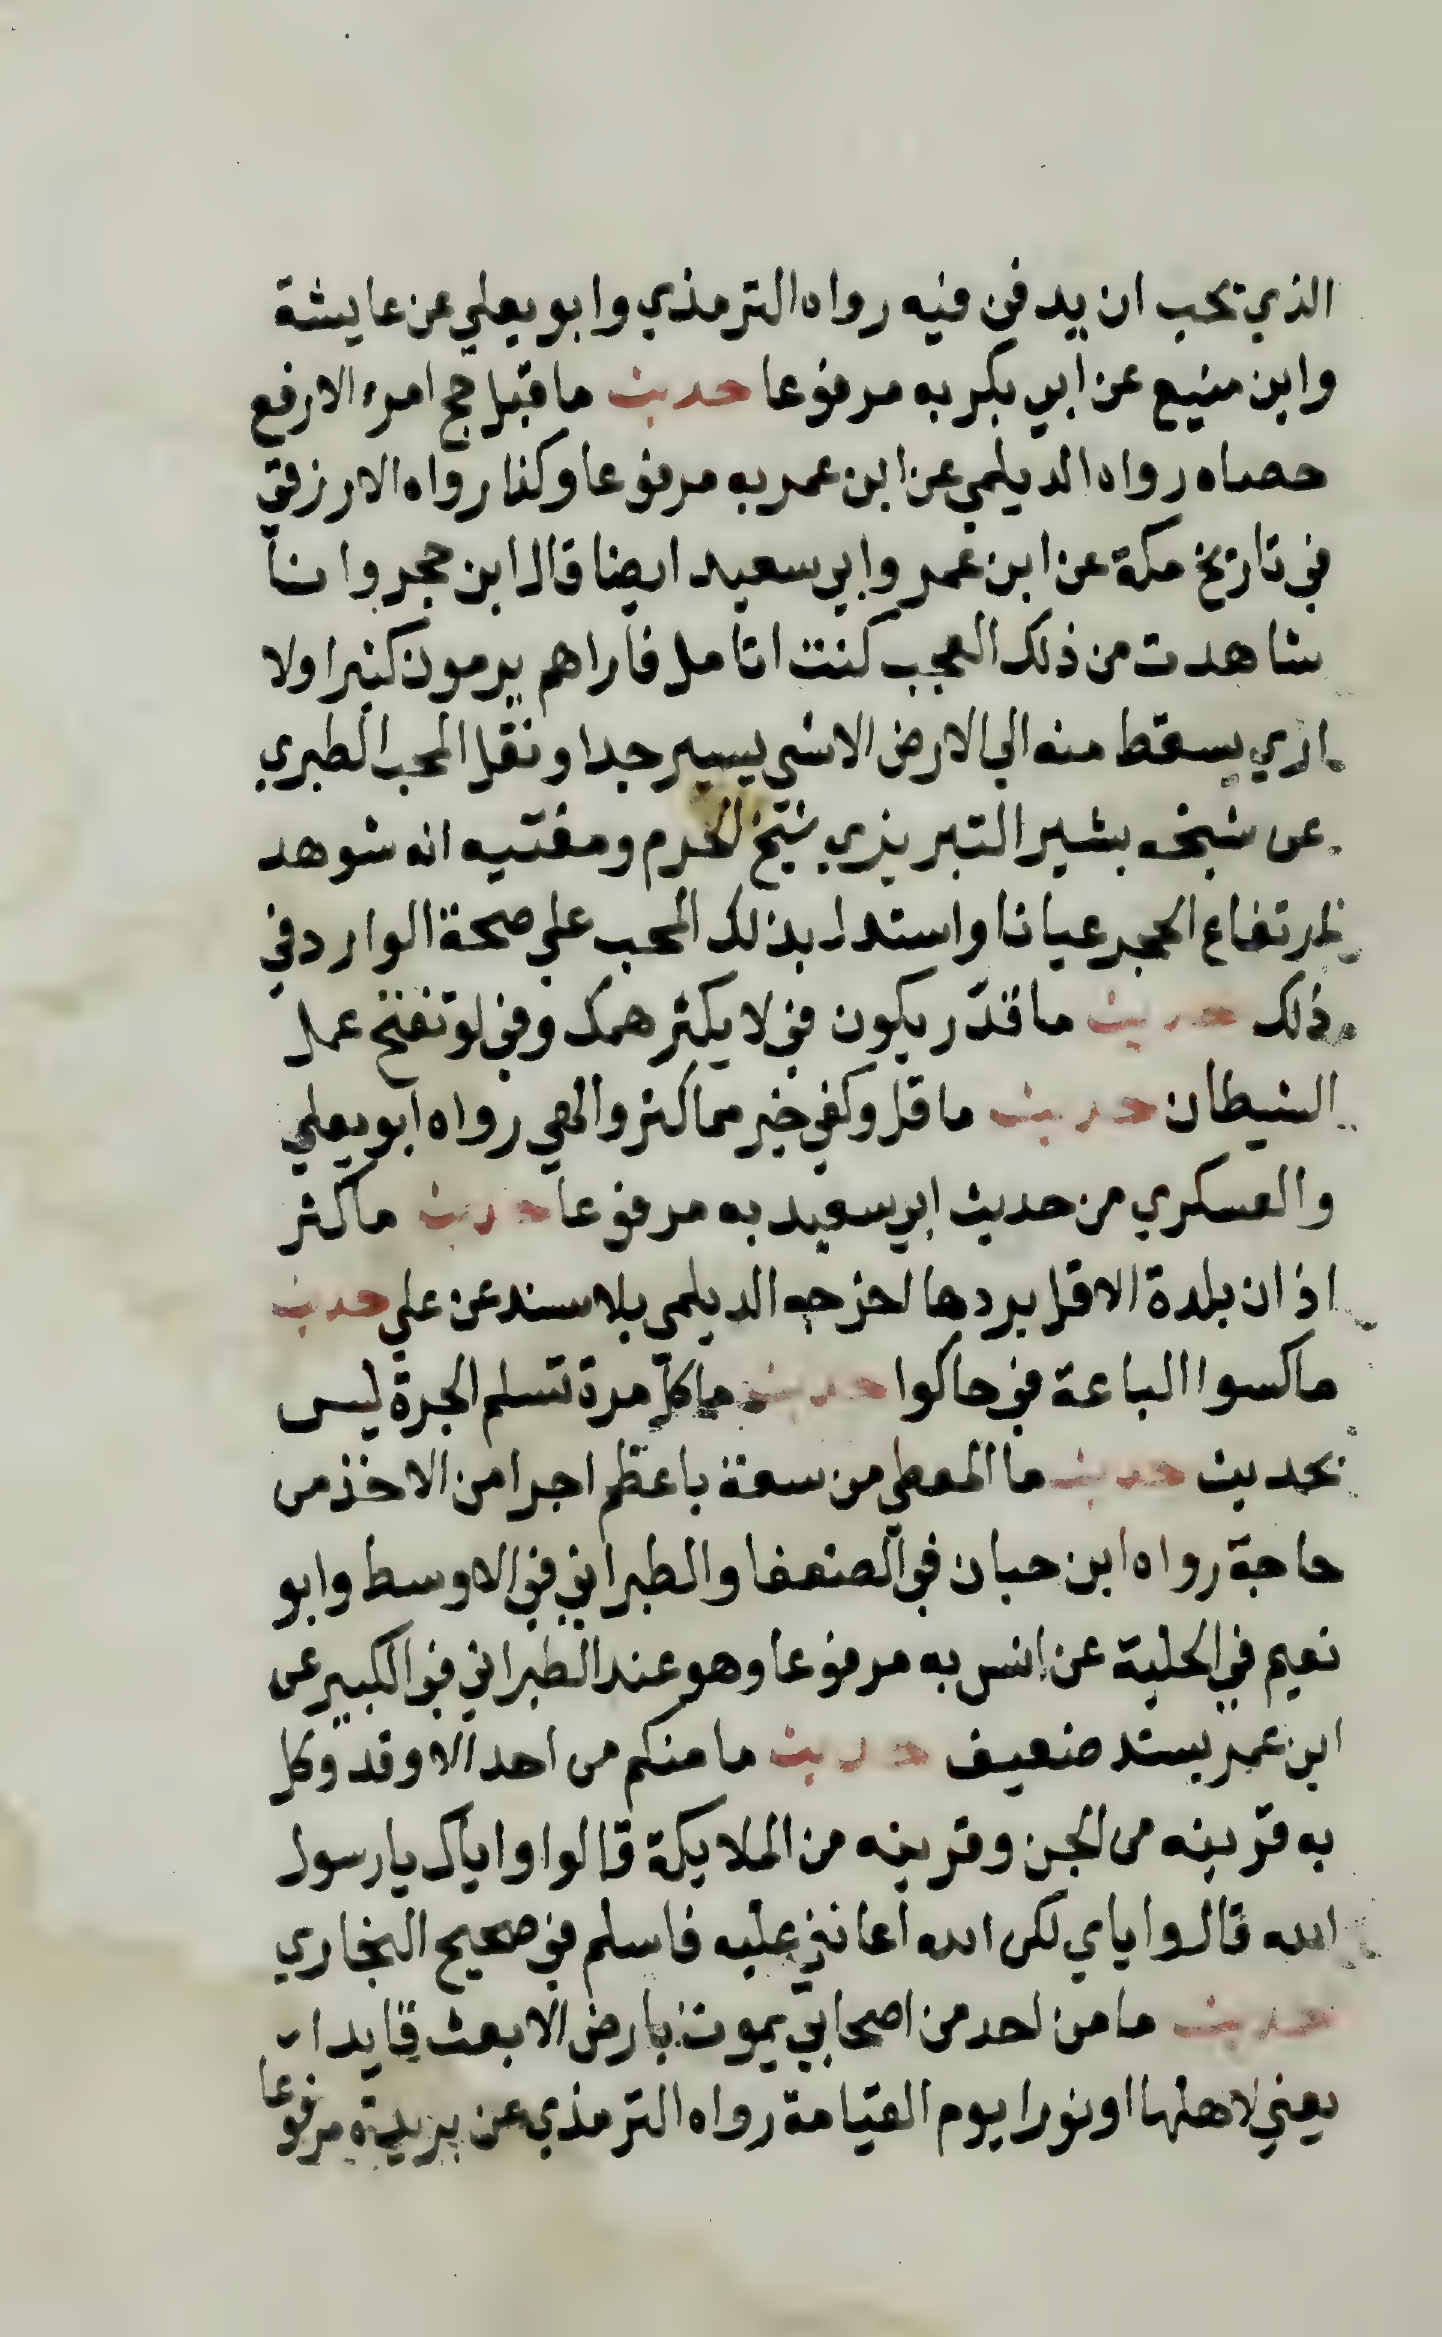 الذي تحب ان يدفن فيه رواه الترمذي وابو يعلي عن عايشة
وابن منيع عن ابي بكر به مرفوعا حديث ما قبل حج امرء الا رفع
حصاه رواه الديلمي عن ابن عمر به مرفوعا وكذا رواه الارزقي
في تاريخ مكة عن ابن عمر وابي سعيد ايضا قال ابن حجر وانا
شاهدت من ذلك العجب كنت اتامل فاراهم يرمون كثيرا ولا
اري يسقط منه الي الارض الا شي يسير جدا ونقل المحب الطبري
عن شيخه بشير التبريزي شيخ الحرم ومفتيه انه شوهد
ارتفاع الحجر عيانا واستدل بذلك المحب علي صحة الوارد في
ذلك حديث ما قدر يكون في لا يكثر همك وفي لو تفتح عمل
الشيطان حديث ما قل وكفي خير مما كثر والهي رواه ابو يعلي
والعسكري من حديث ابي سعيد به مرفوعا حديث ما كثر
اذان بلدة الا قل بردها اخرجه الديلمي بلا سند عن علي حديث
ماكسوا الباعة في حاكوا حديث ما كل مرة تسلم الجرة ليس
بحديث حديث ما المعطي من سعة باعظم اجرا من الاخذ من
حاجة رواه ابن حبان في الضعفا والطبراني في الاوسط وابو
نعيم في الحلية عن انس به مرفوعا وهو عند الطبراني في الكبير عن
ابن عمر بسند ضعيف حديث ما منكم من احد الا وقد وكل
به قرينه من الجن وقرينه من الملايكة قالوا واياك يا رسول
الله قال واياي لكن الله اعانني عليه فاسلم في صحيح البخاري
حديث ما من احد من اصحابي يموت بارض الا بعث قايدا
يعني لاهلها او نورا يوم القيامة رواه الترمذي عن بريدة مرفوعا